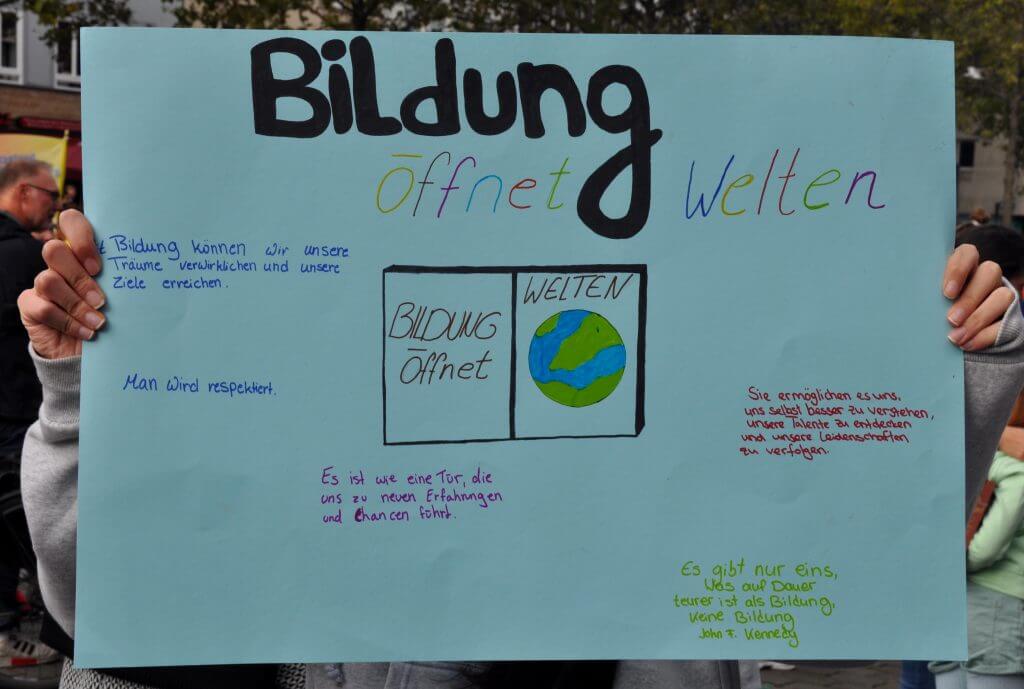 Bildung
Öffnet Welten
t Bildung können wir unsere
Träume verwirklichen und unsere
Ziele erreichen.
BILDUNG
Öffnet
WELTEN
Man wird respektiert.
Sie ermöglichen es uns,
uns selbst besser zu verstehen,
unsere Talente zu entdecken
und unsere Leidenschaften
zu verfolgen.
Es ist wie eine Tür, die
uns zu neuen Erfahrungen
und Chancen führt.
Es gibt nur eins,
Was auf Dauer
teurer ist als Bildung,
Keine Bildung
John F. Kennedy